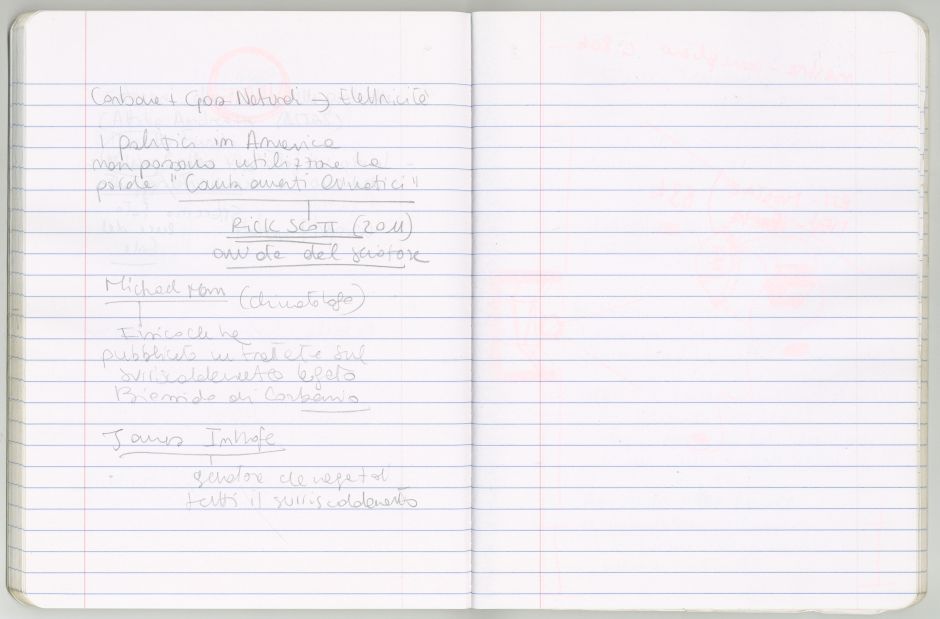 Carbone + Gas Naturali → Elettricità
I politici in America
non possono utilizzare le
parole "Cambiamenti Climatici"
RICK SCOTT (2011)
del senatore
Michael Mann (climatologo)
Fisico che ha
pubblicato un trattato sul
surriscaldamento legato
Biossido di Carbonio
James Inhofe
senatore che nega
tutto il surriscaldamento